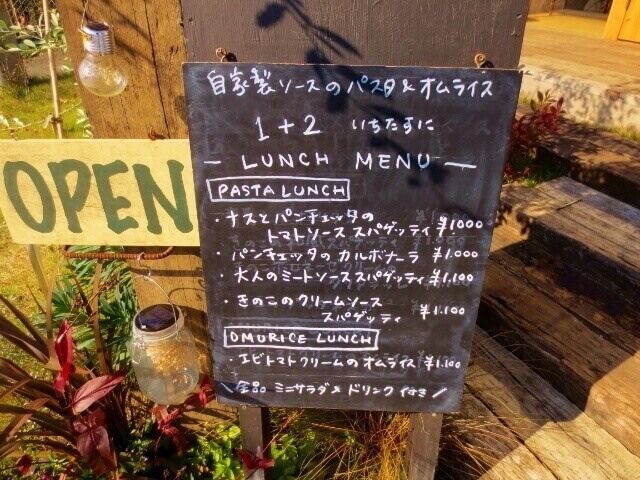 自家製ソースのパスタ&オムライス
1+2 いちたすに
LUNCH MENU
PASTA LUNCH
・ナスとパンチェッタの
トマトソーススパゲッティ ¥1000
・パンチェッタのカルボナーラ ¥1.000
・大人のミートソーススパゲッティ ¥1.100
・きのこのクリームソース
スパゲッティ ¥1.100
OMURICE LUNCH
・エビトマトクリームのオムライス ¥1.100
\全品 ミニサラダ&ドリンク付き/
OPEN